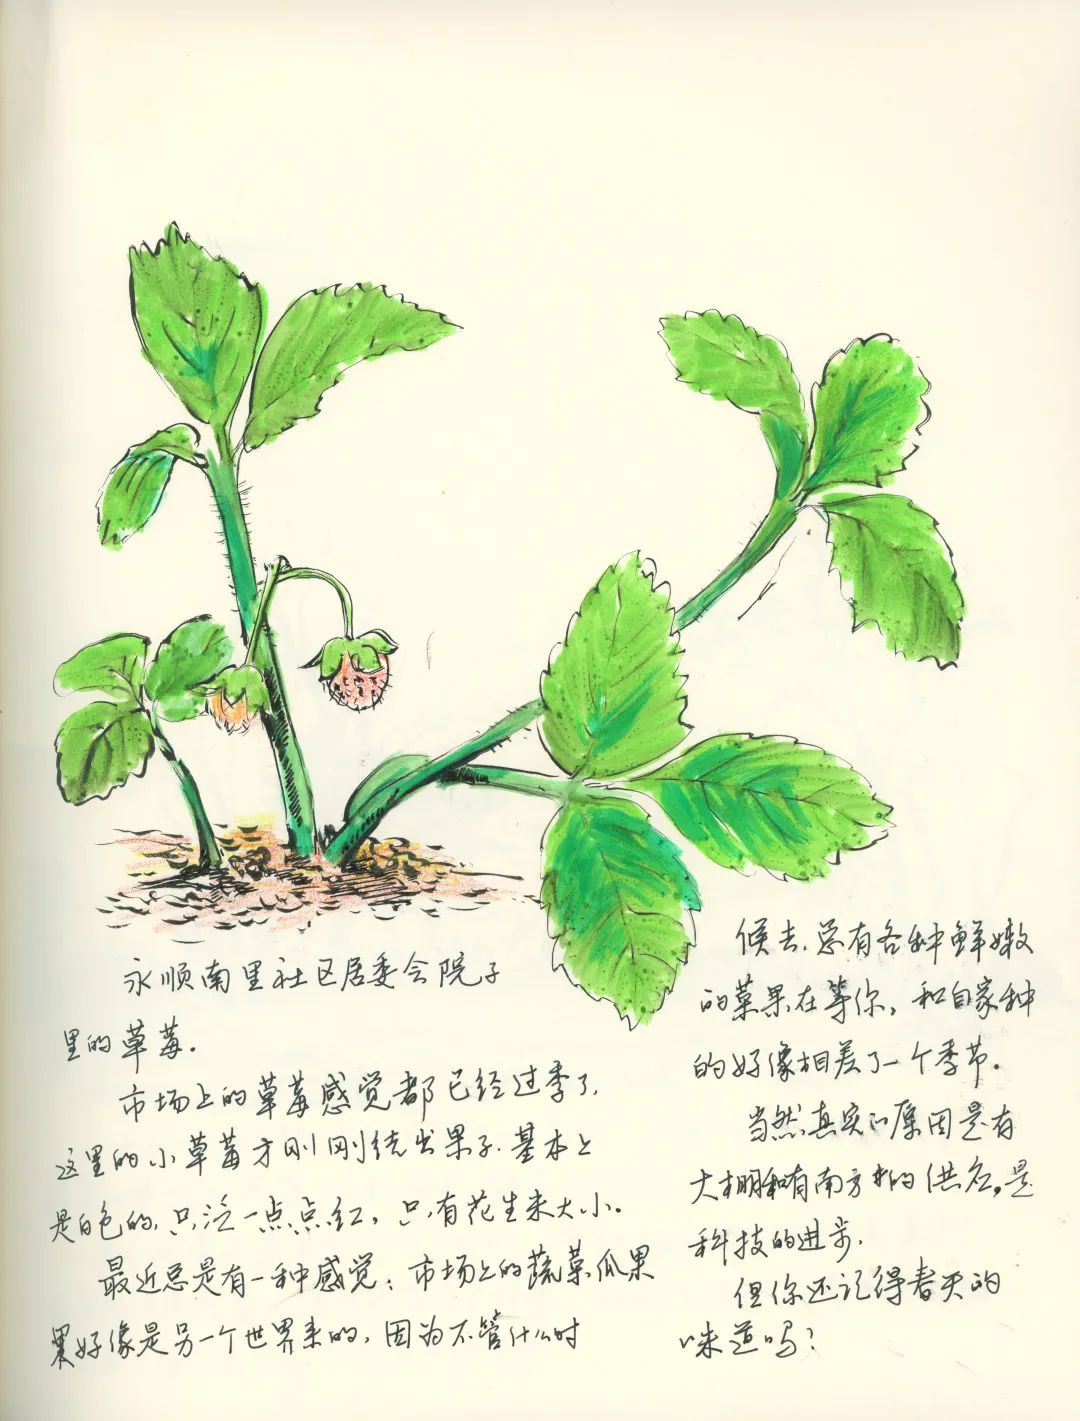 永顺南里社区居委会院子
里的草莓.
市场上的草莓感觉都已经过季了,
这里的小草莓才刚刚结出果子.基本上
是白色的,只泛一点点红,只有花生米大小。
最近总是有一种感觉:市场上的蔬菜瓜果
好像是另一个世界来的,因为不管什么时
候去,总有各种鲜嫩
的菜果在等你,和自家种
的好像相差了一个季节。
当然真实的原因是有
大棚和有南方的供应,是
科技的进步.
但你还记得春天的
味道吗?